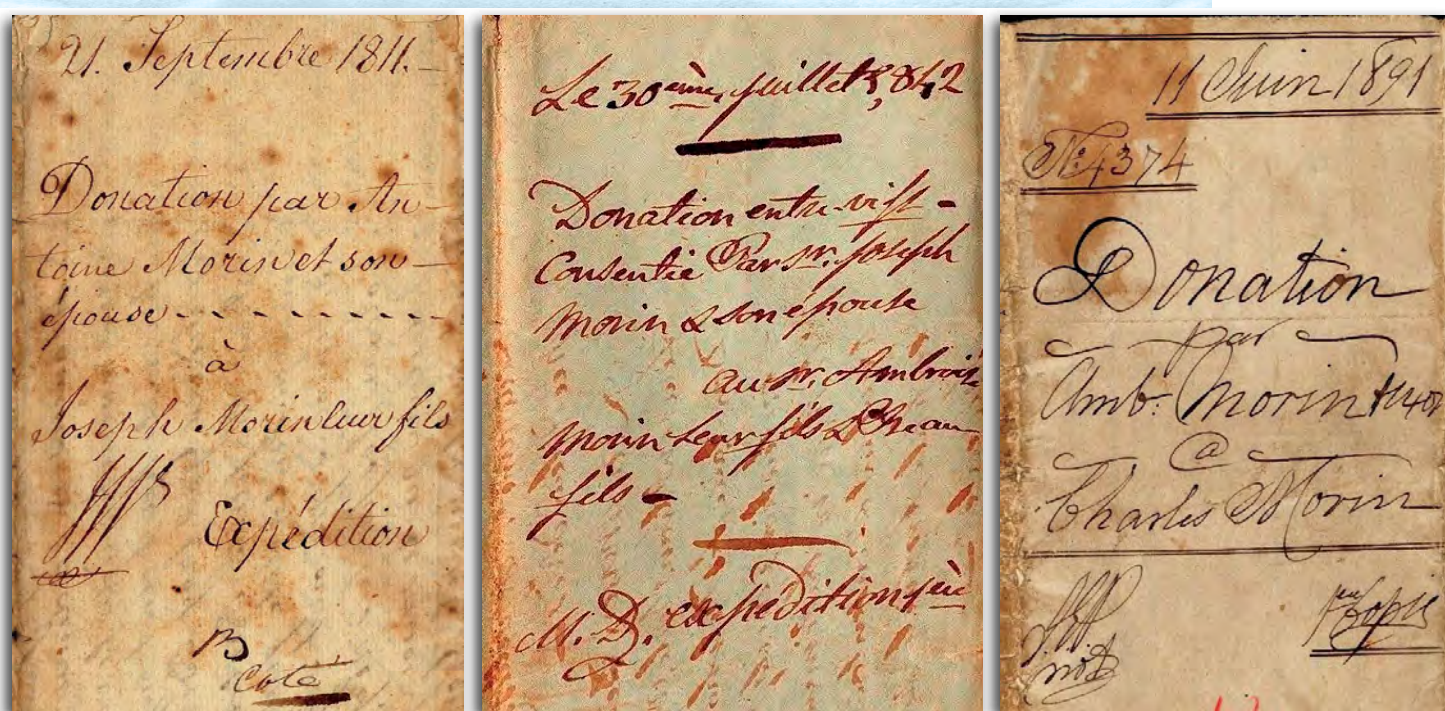 21. Septembre 1811.-
Donation par An-
toine Morin et son-
épouse - - - - - - - -
à
Joseph Morin leur fils
Expédition
B
Coté
Le 30ème juillet 1842
Donation entre-vifs -
Consentie Par Sr. Joseph
Morin & son épouse
au Sr. Ambroise
Morin Leur fils & Beau
fils -
M. D. expédition 1ère
11 Juin 1891
No. 4374
Donation
par
Amb: Morin
@
Charles Morin
not
Copie